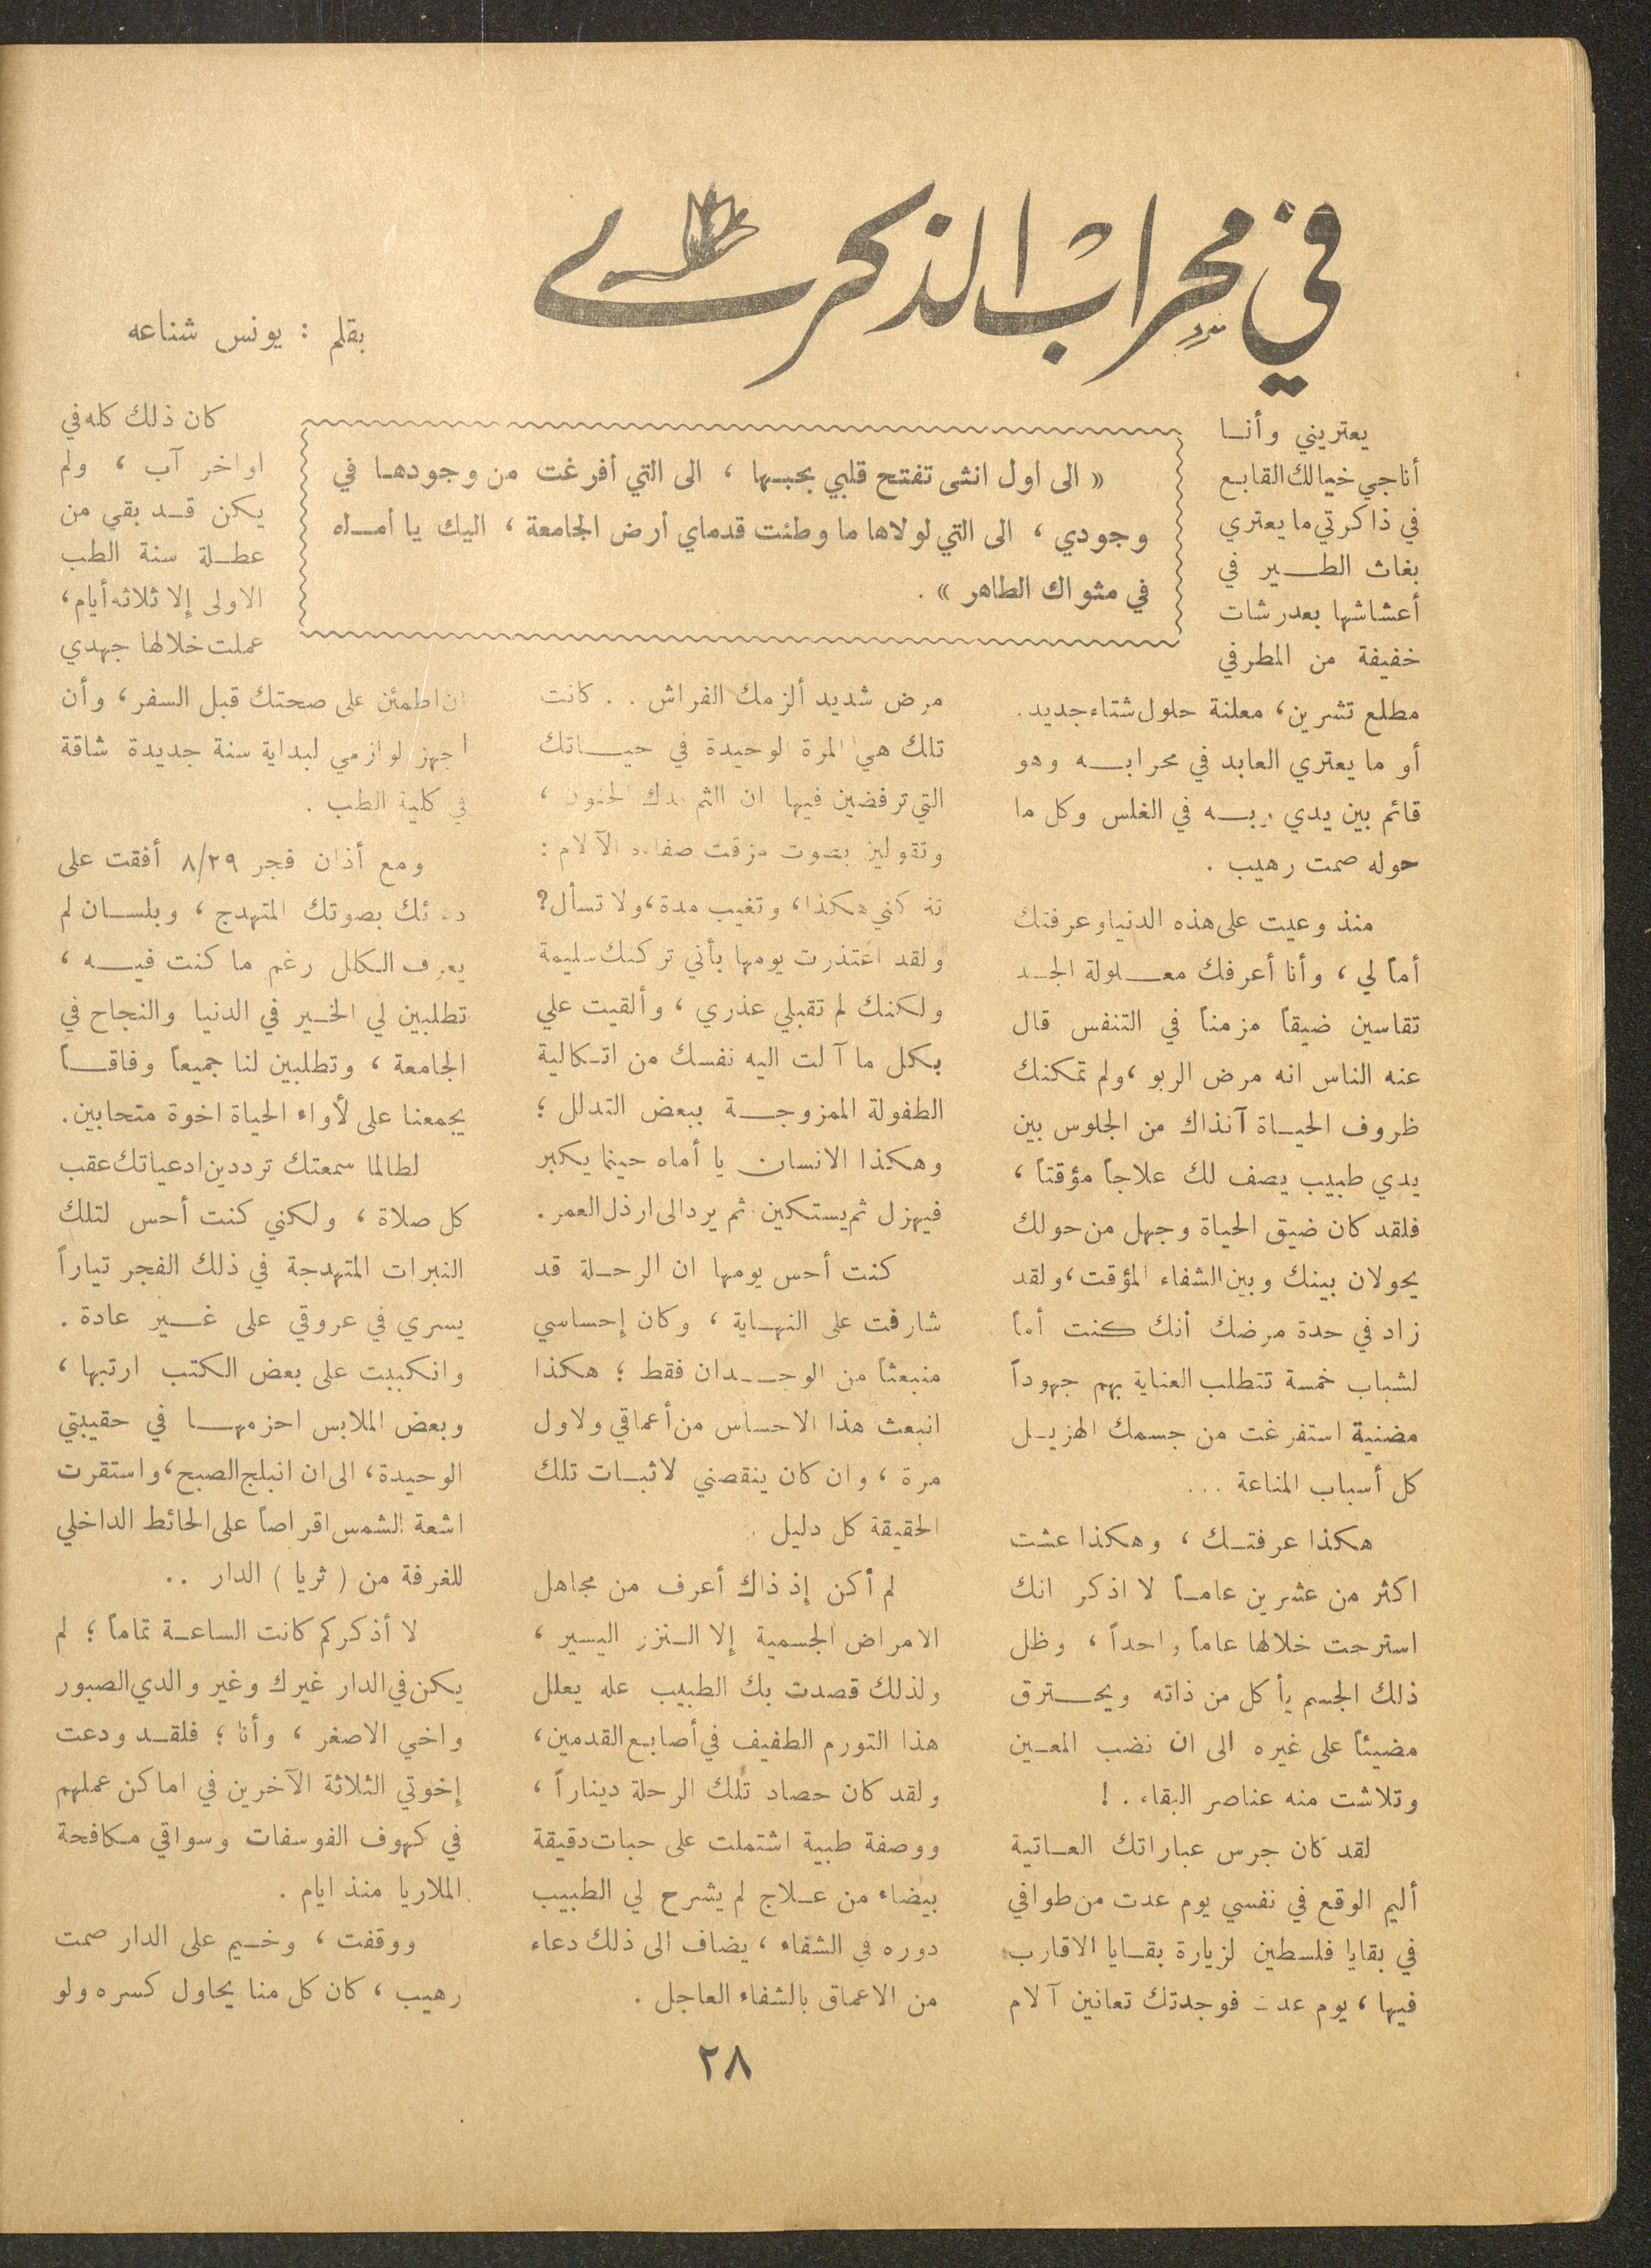 في محراب الذكرى
بقلم : يونس شناعه
« الى اول انثى تفتح قلبي بحبها ، الى التي أفرغت من وجودها في
وجودي ، الى التي لولاها ما وطئت قدماي أرض الجامعة ، اليك يا أماه
في مثواك الطاهر » .
يعتريني وأنا
أناجي خيالك القابع
في ذاكرتي ما يعتري
بغاث الطير في
أعشاشها بعد رشات
خفيفة من المطر في
مطلع تشرين، معلنة حلول شتاء جديد.
أو ما يعتري العابد في محرابه وهو
قائم بين يدي ربه في الغلس وكل ما
حوله صمت رهيب .
منذ وعيت على هذه الدنيا وعرفتك
أماً لي ، وأنا أعرفك معلولة الجسد
تقاسين ضيقاً مزمناً في التنفس قال
عنه الناس انه مرض الربو ، ولم تمكنك
ظروف الحياة آنذاك من الجلوس بين
يدي طبيب يصف لك علاجاً مؤقتاً ،
فلقد كان ضيق الحياة وجهل من حولك
يحولان بينك وبين الشفاء المؤقت ، ولقد
زاد في حدة مرضك أنك كنت أماً
لشباب خمسة تتطلب العناية بهم جهوداً
مضنية استفرغت من جسمك الهزيل
كل أسباب المناعة ...
هكذا عرفتك ، وهكذا عشت
اكثر من عشرين عاماً لا اذكر انك
استرحت خلالها عاماً واحداً ، وظل
ذلك الجسم يأكل من ذاته ويحترق
مضيئاً على غيره الى ان نضب المعين
وتلاشت منه عناصر البقاء . !
لقد كان جرس عباراتك العاتية
أليم الوقع في نفسي يوم عدت من طوافي
في بقايا فلسطين لزيارة بقايا الاقارب
فيها ، يوم عدت فوجدتك تعانين آلام
مرض شديد ألزمك الفراش . . كانت
تلك هي المرة الوحيدة في حياتك
التي ترفضين فيها ان الثم يدك الحنون ،
وتقولين بصوت مزقت صفاءه الآلام :
تتركني هكذا ، وتغيب مدة ، ولا تسأل ?
ولقد اعتذرت يومها بأني تركتك سليمة
ولكنك لم تقبلي عذري ، وألقيت علي
بكل ما آلت اليه نفسك من اتكالية
الطفولة الممزوجة ببعض التدلل ؛
وهكذا الانسان يا أماه حينما يكبر
فيهزل ثم يستكين ثم يرد الى ارذل العمر .
كنت أحس يومها ان الرحلة قد
شارفت على النهاية ، وكان إحساسي
منبعثاً من الوجدان فقط ؛ هكذا
انبعث هذا الاحساس من أعماقي ولاول
مرة ، وان كان ينقصني لاثبات تلك
الحقيقة كل دليل .
لم أكن إذ ذاك أعرف من مجاهل
الامراض الجسمية إلا النزر اليسير ،
ولذلك قصدت بك الطبيب عله يعلل
هذا التورم الطفيف في أصابع القدمين ،
ولقد كان حصاد تلك الرحلة ديناراً ،
ووصفة طبية اشتملت على حبات دقيقة
بيضاء من علاج لم يشرح لي الطبيب
دوره في الشفاء ، يضاف الى ذلك دعاء
من الاعماق بالشفاء العاجل .
كان ذلك كله في
اواخر آب ، ولم
يكن قد بقي من
عطلة سنة الطب
الاولى إلا ثلاثه أيام ،
عملت خلالها جهدي
ان اطمئن على صحتك قبل السفر ، وأن
اجهز لوازمي لبداية سنة جديدة شاقة
في كلية الطب .
ومع أذان فجر ٨/٢٩ أفقت على
دعائك بصوتك المتهدج ، وبلسان لم
يعرف الكلل رغم ما كنت فيه ،
تطلبين لي الخير في الدنيا والنجاح في
الجامعة ، وتطلبين لنا جميعاً وفاقاً
يجمعنا على لأواء الحياة اخوة متحابين .
لطالما سمعتك ترددين ادعياتك عقب
كل صلاة ، ولكني كنت أحس لتلك
النبرات المتهدجة في ذلك الفجر تياراً
يسري في عروقي على غير عادة .
وانكببت على بعض الكتب ارتبها ،
وبعض الملابس احزمها في حقيبتي
الوحيدة ، الى ان انبلج الصبح ، واستقرت
اشعة الشمس اقراصاً على الحائط الداخلي
للغرفة من ( ثريا ) الدار ..
لا أذكر كم كانت الساعة تماماً ؛ لم
يكن في الدار غيرك وغير والدي الصبور
واخي الاصغر ، وأنا ؛ فلقد ودعت
إخوتي الثلاثة الآخرين في اماكن عملهم
في كهوف الفوسفات وسواقي مكافحة
الملاريا منذ ايام .
ووقفت ، وخيم على الدار صمت
رهيب ، كان كل منا يحاول كسره ولو
٢٨